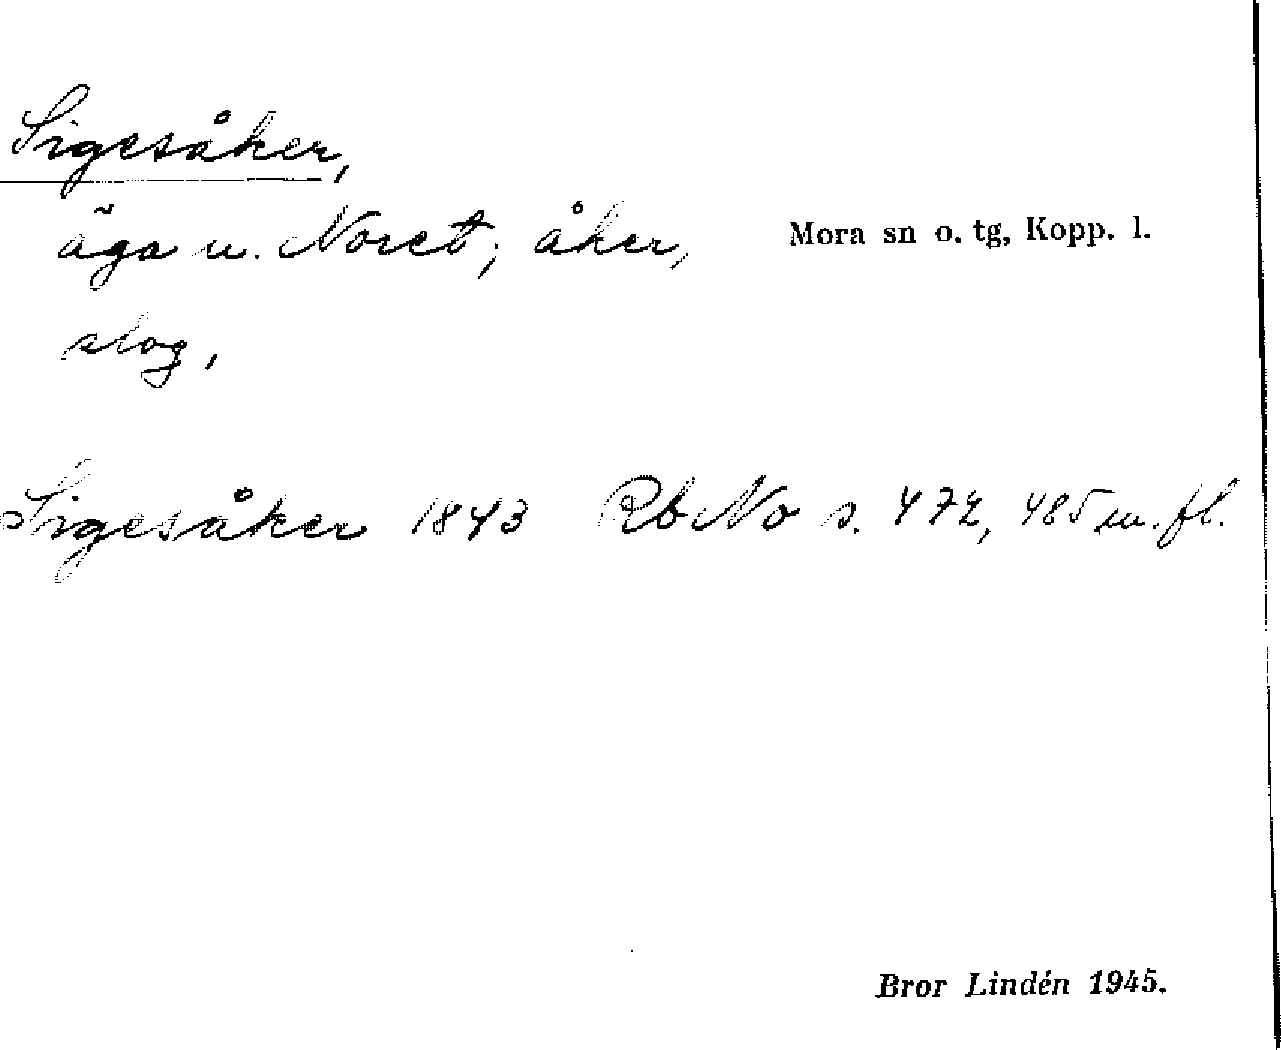 Sigesåker,
äga u. Noret; åker,
slog,
Mora sn o. tg, Kopp. l.
Sigesåker 1843 RbNo s. 472, 485 m. fl.
Bror Lindén 1945.